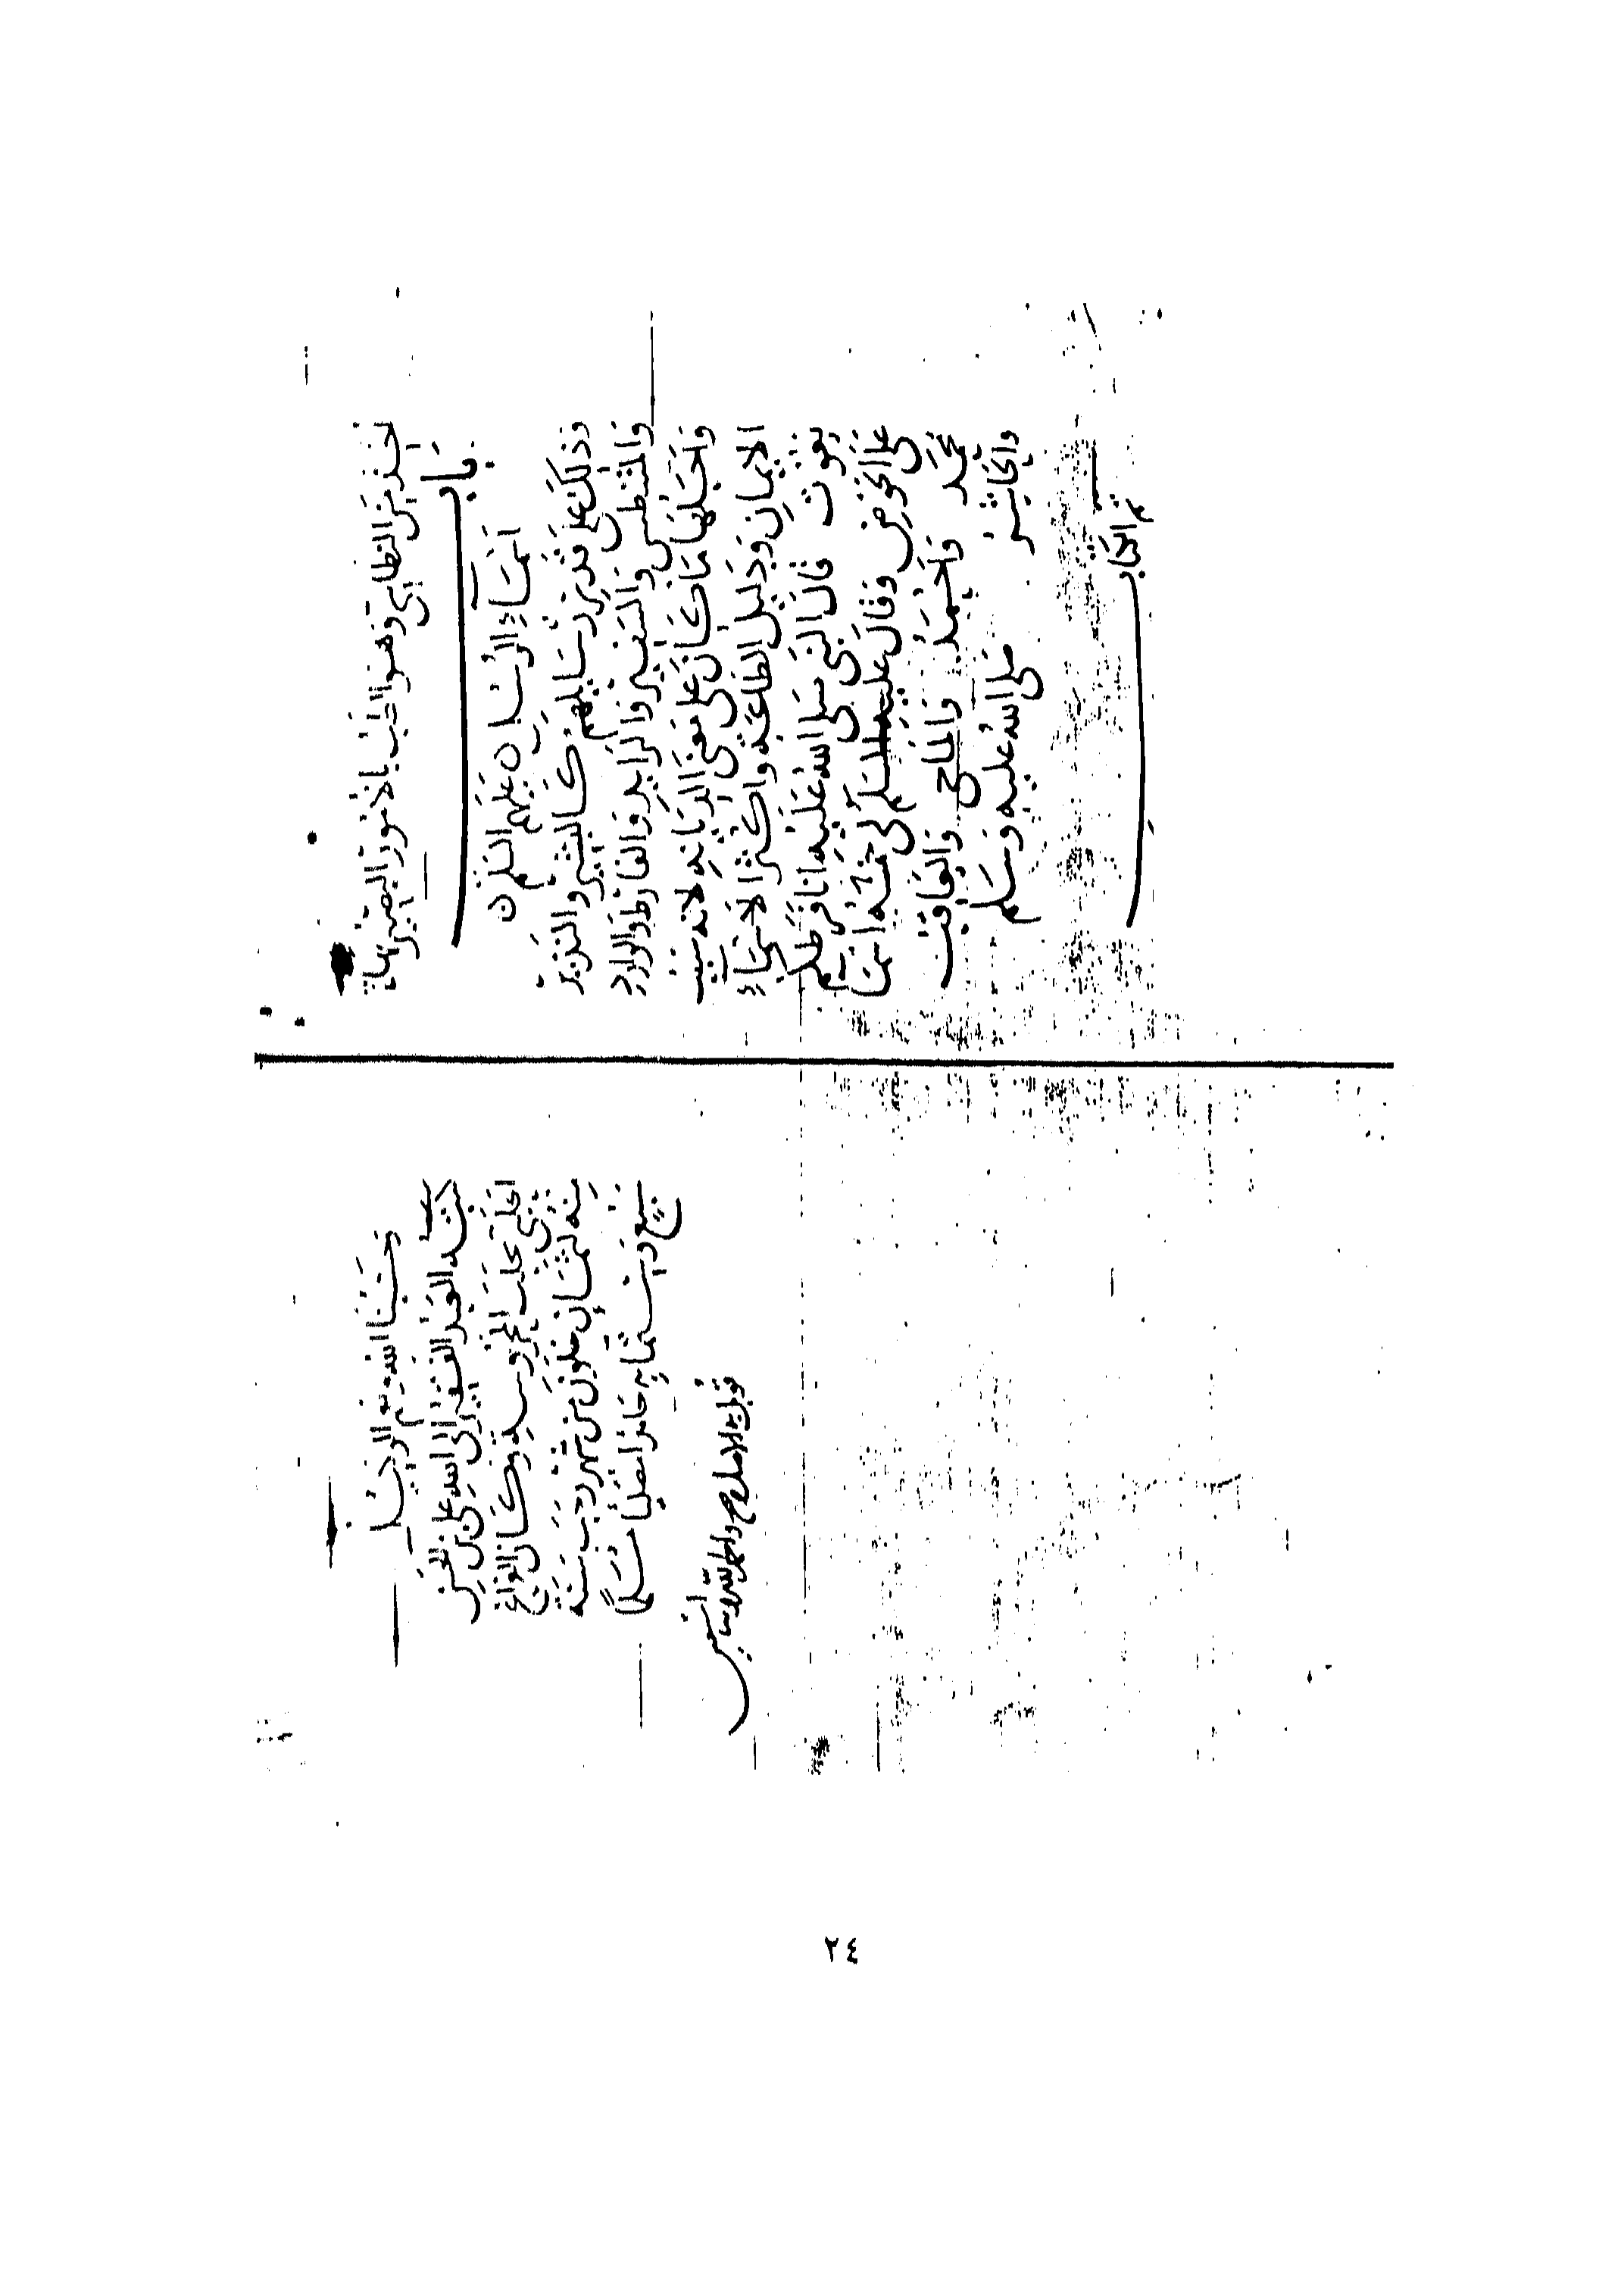 اخذ من النطاسي وهو الطب بالأمور البصير بها
باب
اسماء الرسل عليهم السلم
وذلك على قدر رسايلهم كالبشير والنذير
والمنتظر والسفير والرايد والفارط والوارد
واجلها ما كان على معنى الديانه لانه سبب
الايمان ودليل الطاعة واكثر الاسماء
بعوث قال النبي صلى الله عليه انا فرطكم
على الحوض وقال عليه السلم لي خمسه اسما
محمد واحمد والماحي والعاقب
والحاشر صلى الله عليه وسلم
تم الكتاب
حسبنا الله ونعم الوكيل
كتبه العبد الفقير الى الله على بن
بحلب المحروسة وكان الفراغ
منه لثمان خلون من شهر رجب سنة
سبع وستماية حامدا مصليا مسلما
قوبل بالاصل وصح والحمد لله
٢٤